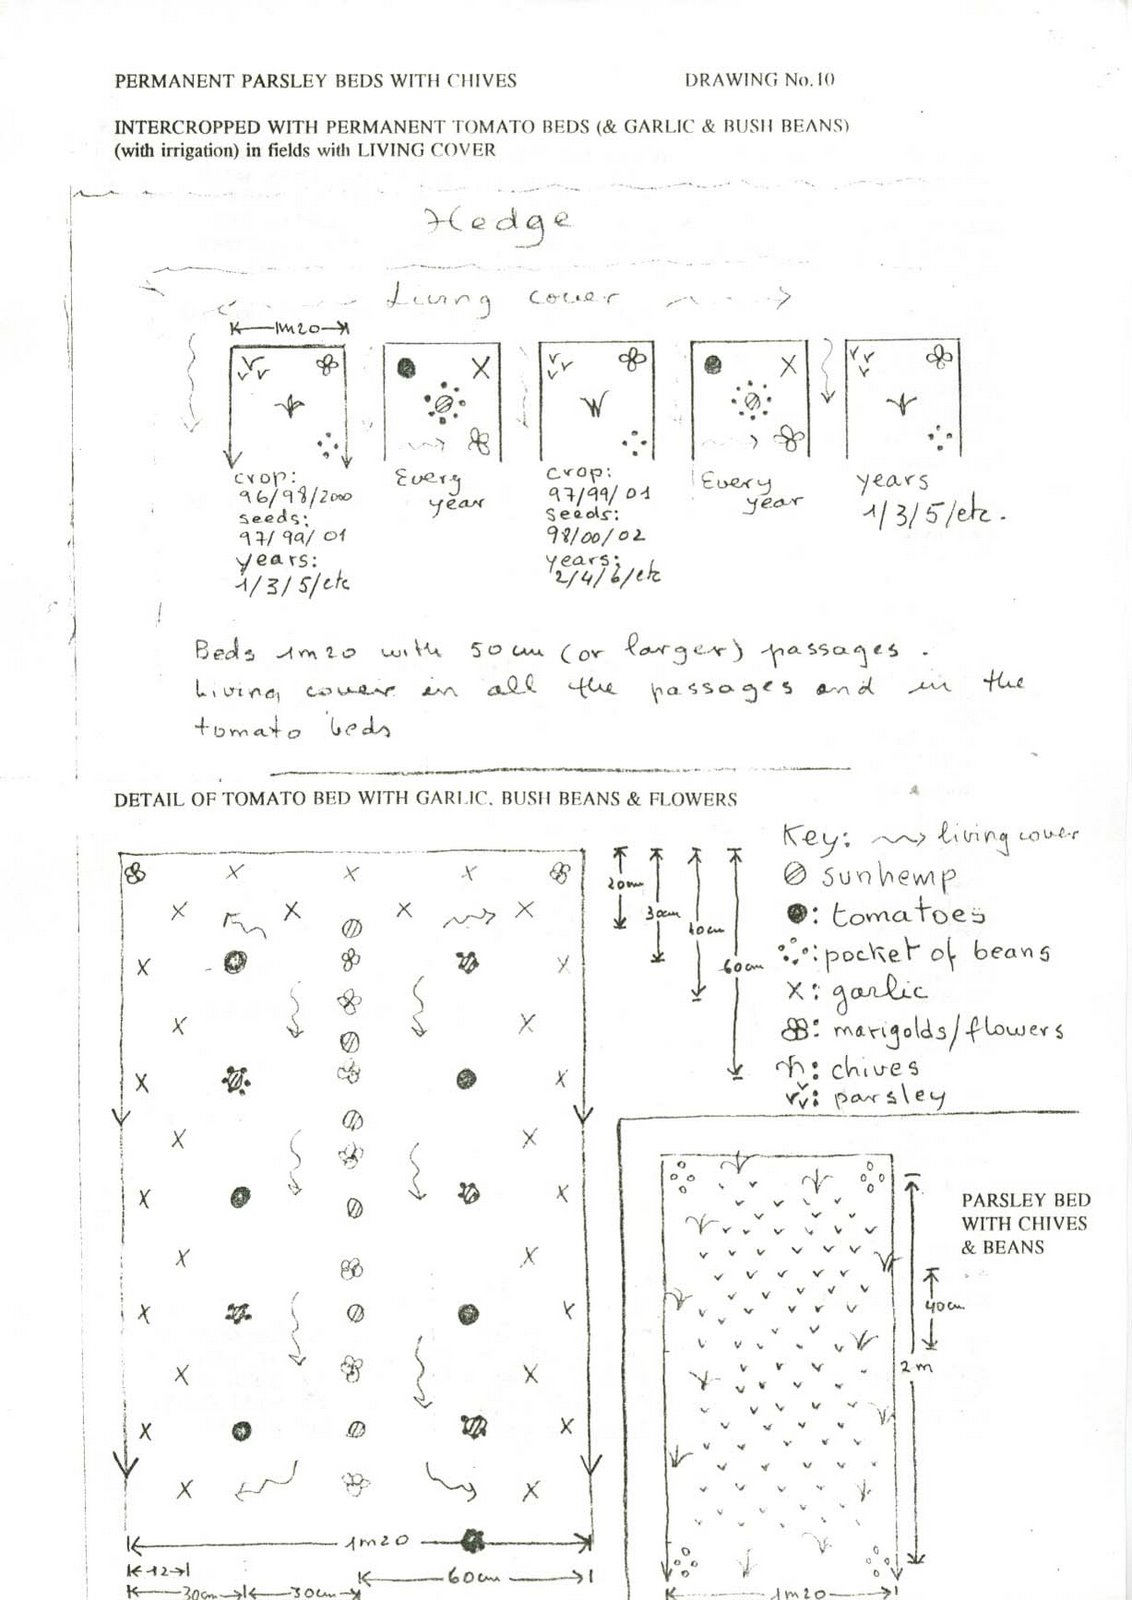 PERMANENT PARSLEY BEDS WITH CHIVES DRAWING No.10
INTERCROPPED WITH PERMANENT TOMATO BEDS (& GARLIC & BUSH BEANS)
(with irrigation) in fields with LIVING COVER
Hedge
Living cover
1m20
crop:
96/98/2000
seeds:
97/99/01
years:
1/3/5/etc
Every
year
crop:
97/99/01
seeds:
98/00/02
years:
2/4/6/etc
Every
year
years
1/3/5/etc.
Beds 1m20 with 50cm (or larger) passages.
Living cover in all the passages and in the
tomato beds
DETAIL OF TOMATO BED WITH GARLIC, BUSH BEANS & FLOWERS
20cm
30cm
40cm
60cm
Key: living cover
sunhemp
: tomatoes
: pocket of beans
X: garlic
: marigolds/flowers
: chives
: parsley
PARSLEY BED
WITH CHIVES
& BEANS
40cm
2m
1m20
12
60cm
30cm 30cm
1m20